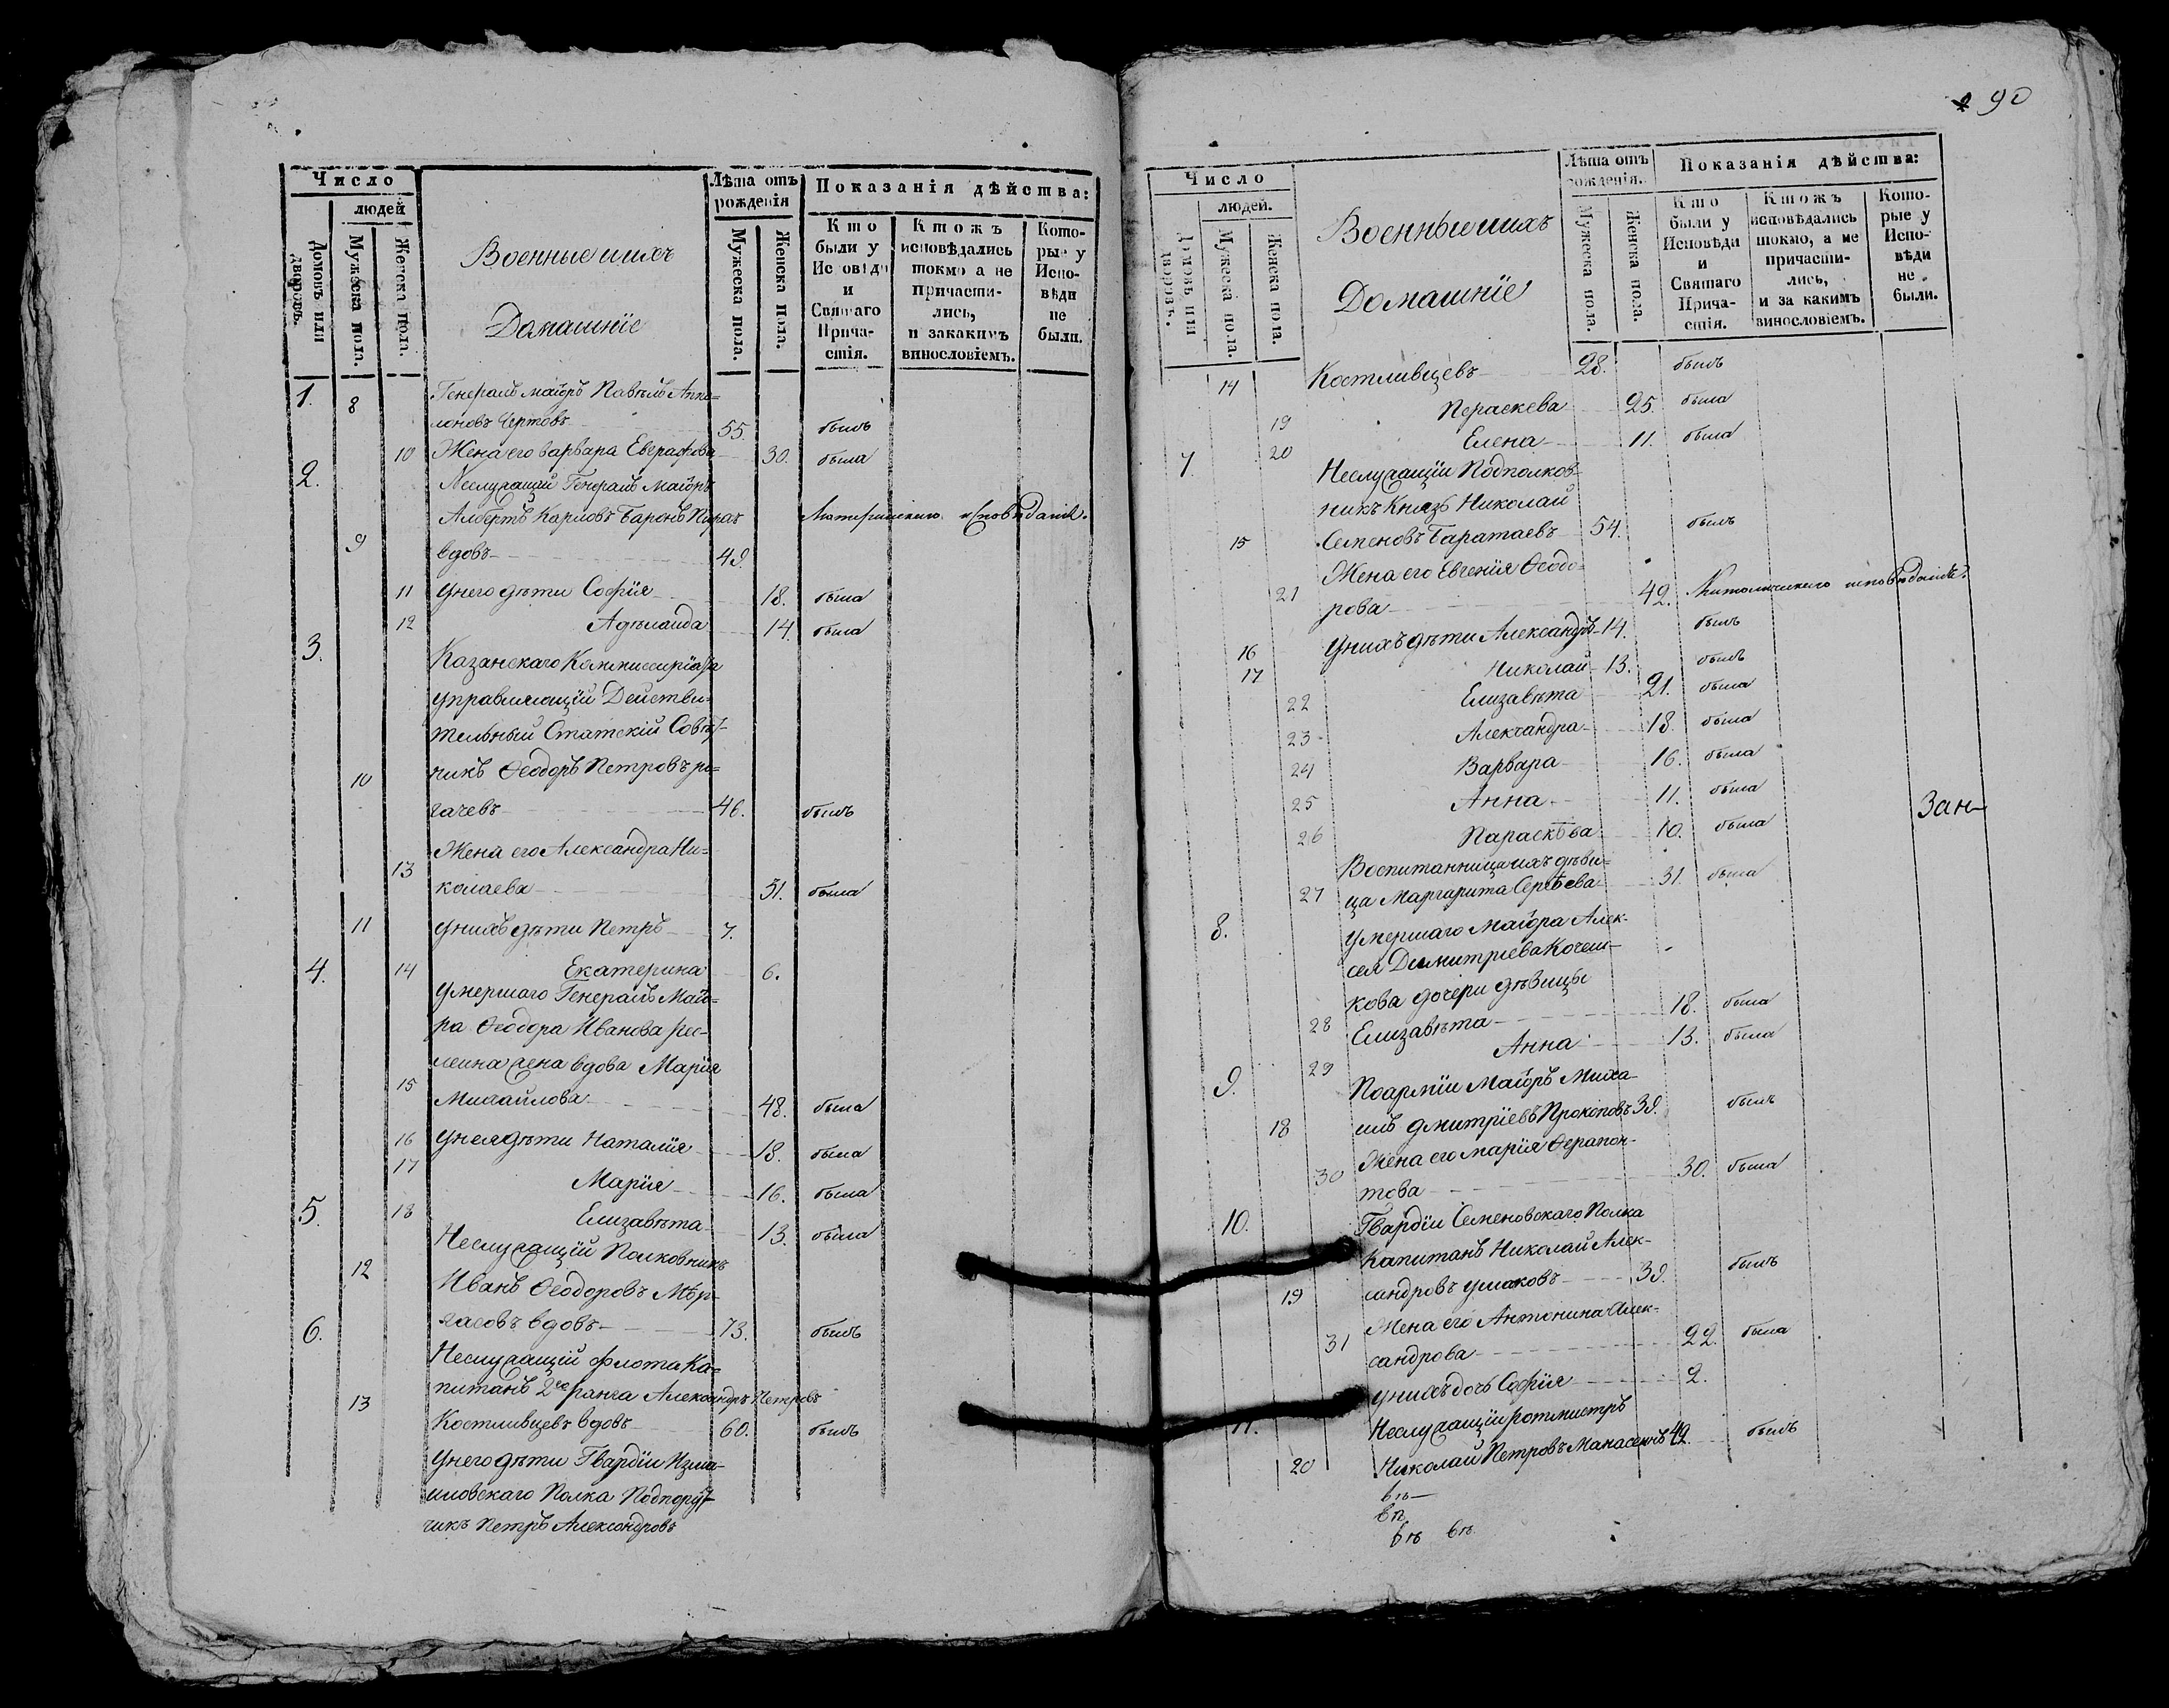 Число
людей
Домовъ или дворовъ.
Мужеска пола.
Женска пола.
Военные и ихъ
Домашніе
Лѣта отъ рожденія
Мужеска пола.
Женска пола.
Показанія дѣйства:
Кто были у Исповѣди и Святаго Прича-стія.
Ктожъ исповѣдались токмо а не причасти-лись, и закакимъ винословіемъ.
Кото-рые у Испо-вѣди не были.
1. 8 Генералъ маіоръ Павелъ Апол-
лоновъ Чертовъ 55. былъ
10 Жена его варвара Евграфова 30. была
2. Неслужащій Генералъ Маіоръ
Албертъ Карловъ Баронъ Пирхъ Лютеранскаго исповѣданія.
9 вдовъ 49.
11 У него дѣти Софія 18. была
12 Аделаида 14. была
3. Казанскаго Коммиссаріата
управляющій Действи-
тельный Статскій Совѣт-
10 никъ Ѳеодоръ Петровъ ро-
гачевъ 46. былъ
Жена его Александра Ни-
13 колаева 31. была
11 У нихъ дѣти Петръ 7.
4. 14 Екатерина 6.
Умершаго Генералъ Маіо-
ра Ѳеодора Иванова Рес-
леина жена вдова Марія
15 Михайлова 48. была
16 У нея дѣти Наталія 18. была
17 Марія 16. была
5. 18 Елизавѣта 13. была
Неслужащій Полковникъ
12 Иванъ Ѳеодоровъ Мер-
гасовъ вдовъ 73. былъ
6. Неслужащій флота Ка-
питанъ 2го ранга Александръ Петровъ
13 Костливцевъ вдовъ 60. былъ
У него дѣти Гвардіи Изма-
иловскаго Полка Подпору-
чикъ Петръ Александровъ
90
Число
людей.
Домовъ или дворовъ.
Мужеска пола.
Женска пола.
Военные и ихъ
Домашніе
Лѣта отъ рожденія.
Мужеска пола.
Женска пола.
Показанія дѣйства:
Кто были у Исповѣди и Святаго Прича-стія.
Ктожъ исповѣдались токмо, а не причасти-лись, и за какимъ винословіемъ.
Кото-рые у Испо-вѣди не были.
14 Костливцевъ 28. былъ
19 Пераскева 25. была
20 Елена 11. была
7. Неслужащіи Подполков-
никъ Князь Николай
15 Семеновъ Баратаевъ 54. былъ
Жена его Евгенія Ѳеодо-
21 рова 42. Католическаго исповѣданія.
16 У нихъ дѣти Александръ 14. былъ
17 Николай 13. былъ
22 Елизавѣта 21. была
23 Александра 18. была
24 Варвара 16. была
25 Анна 11. была
Зан
26 Параскѣва 10. была
Воспитанница ихъ дѣви-
27 ца Маргарита Сергѣева 31. была
8. Умершаго Маіора Алек-
сея Димитріева Кочеш-
кова дочери дѣвицы
28 Елизавѣта 18. была
29 Анна 13. была
9. По арміи Маіоръ Миха-
18 илъ дмитріевъ Прокоповъ 39. былъ
Жена его марія Ѳерапон-
30 това 30. была
10. Гвардіи Семеновскаго Полка
Капитанъ Николай Алек-
19 сандровъ ушаковъ 39. былъ
Жена его Антонина Алек-
31 сандрова 22. была
У нихъ дочь Софія 2.
11. Неслужащіи ротмистръ
20 Николай Петровъ Манасеинъ 42. былъ
въ
въ
въ въ